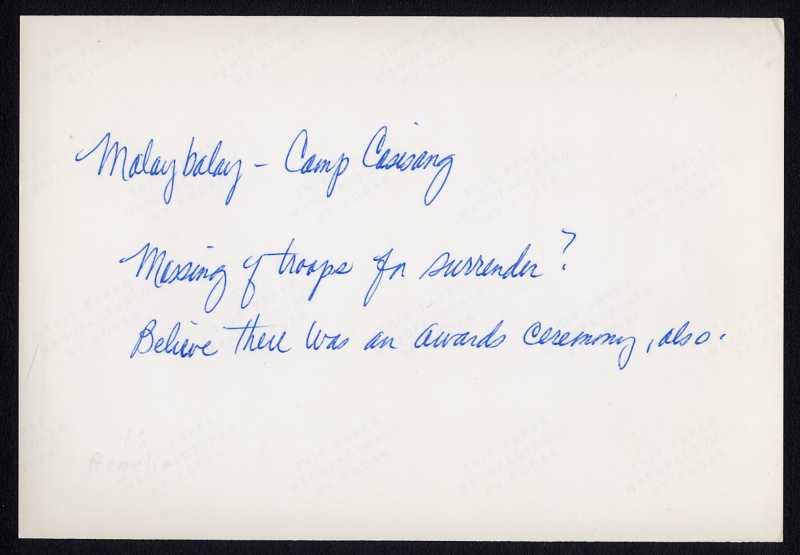 Malaybalay – Camp Casisang
Massing of troops for surrender?
Believe there was an awards ceremony, also.
THIS PAPER
MANUFACTURED
BY KODAK